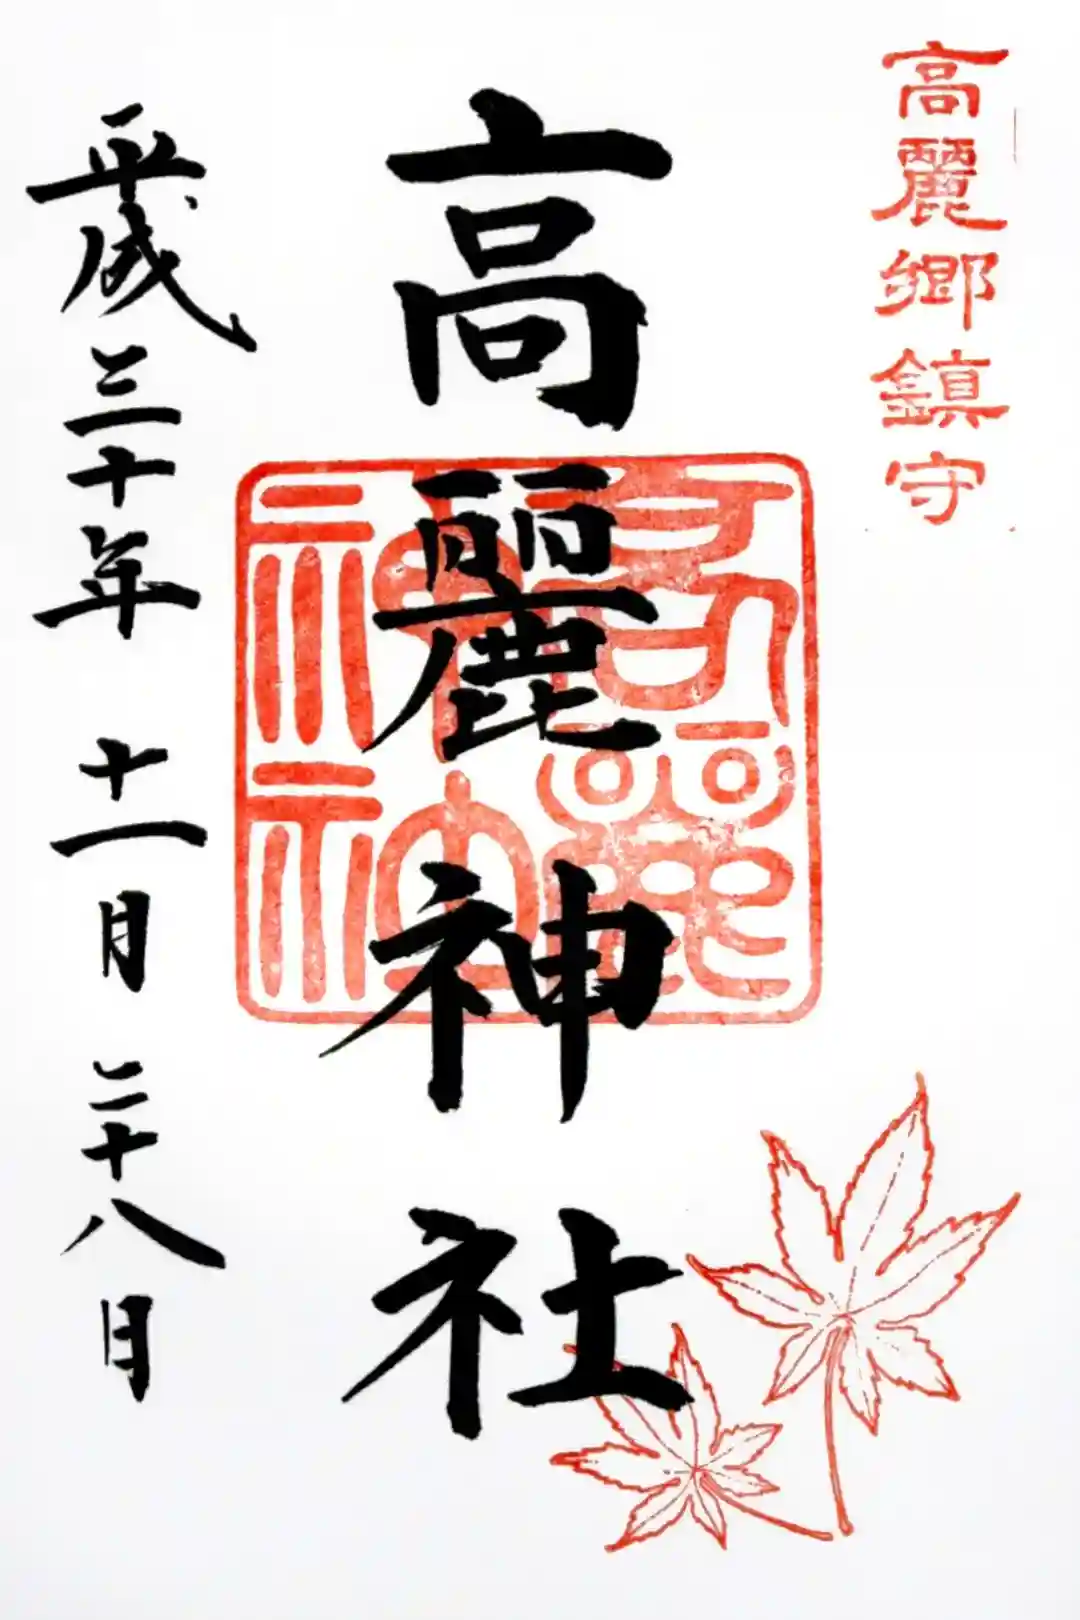 高麗郷鎮守
高麗神社
高麗神社
平成三十年 十一月 二十八日